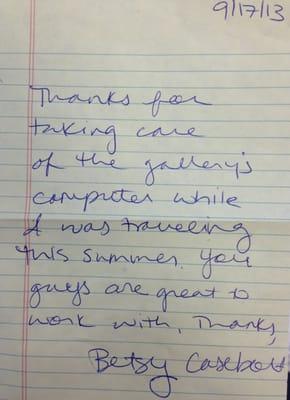 9/17/13
Thanks for
taking care
of the gallery's
computer while
I was traveling
this summer. You
guys are great to
work with. Thanks,
Betsy